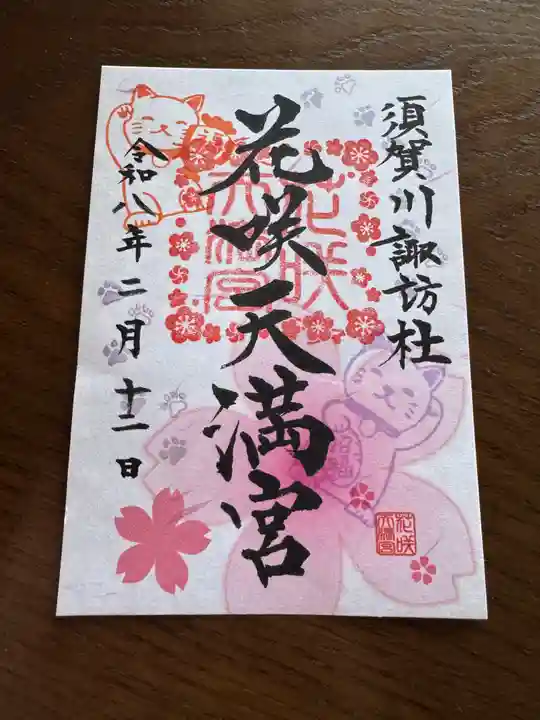 須賀川諏訪社
花咲天満宮
令和八年二月十一日
花咲
天満宮
花咲
天満宮